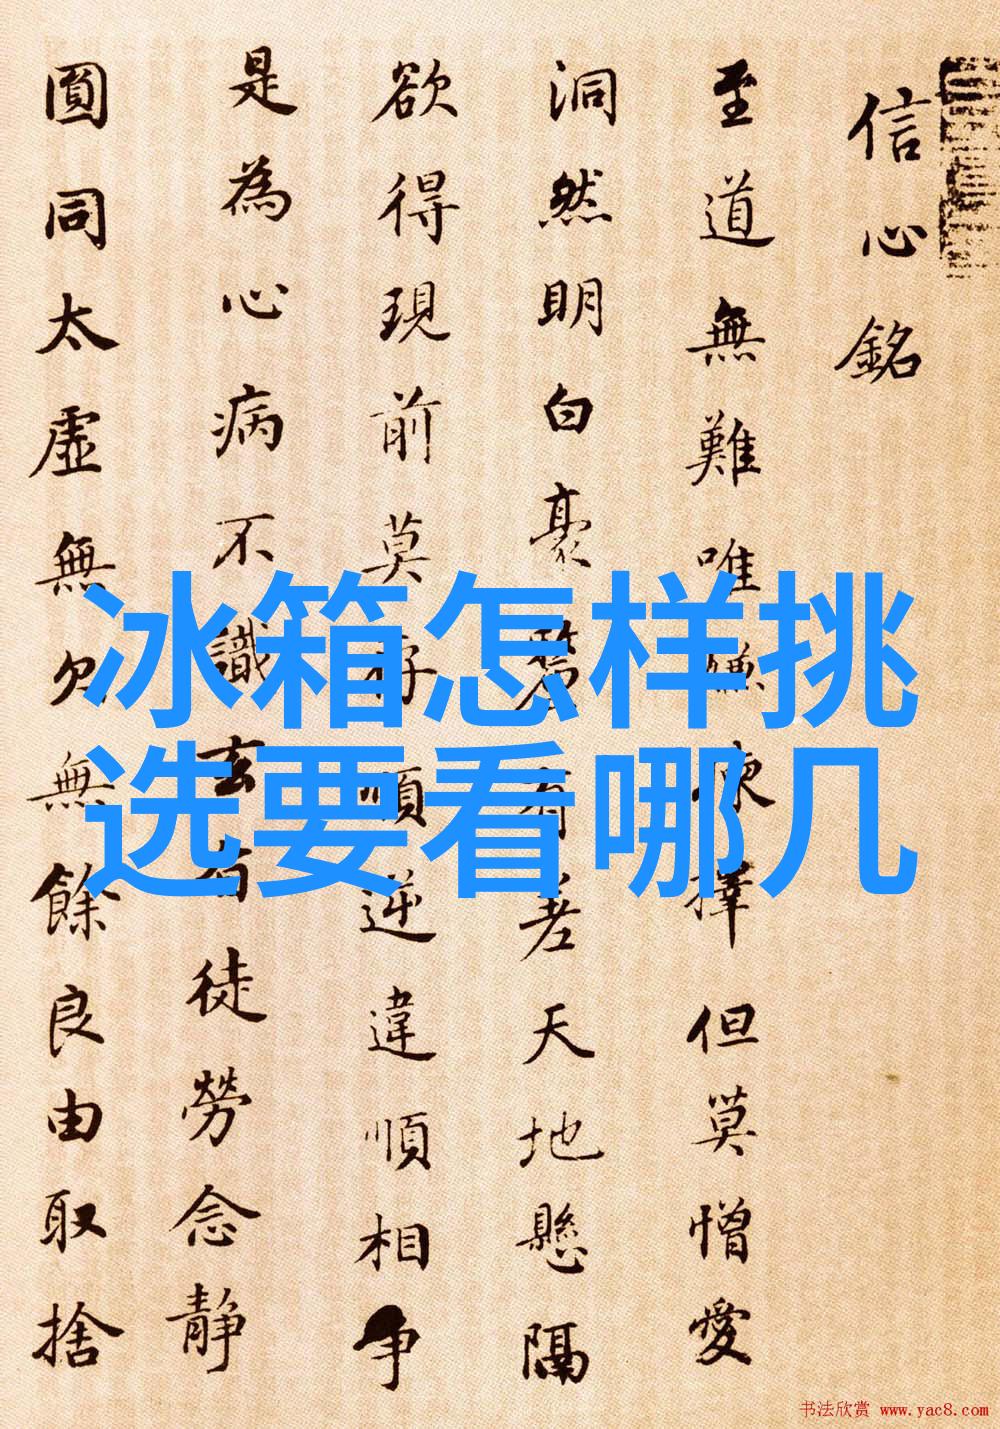 信心銘
至道無難唯嫌揀擇但莫憎愛
洞然明白豪釐有差天地懸隔
欲得現前莫存順逆違順相争
是為心病不識玄旨徒勞念静
圓同太虛無欠無餘良由取捨
冰箱怎样挑
选要看哪几
书法欣赏 www.yac8.com